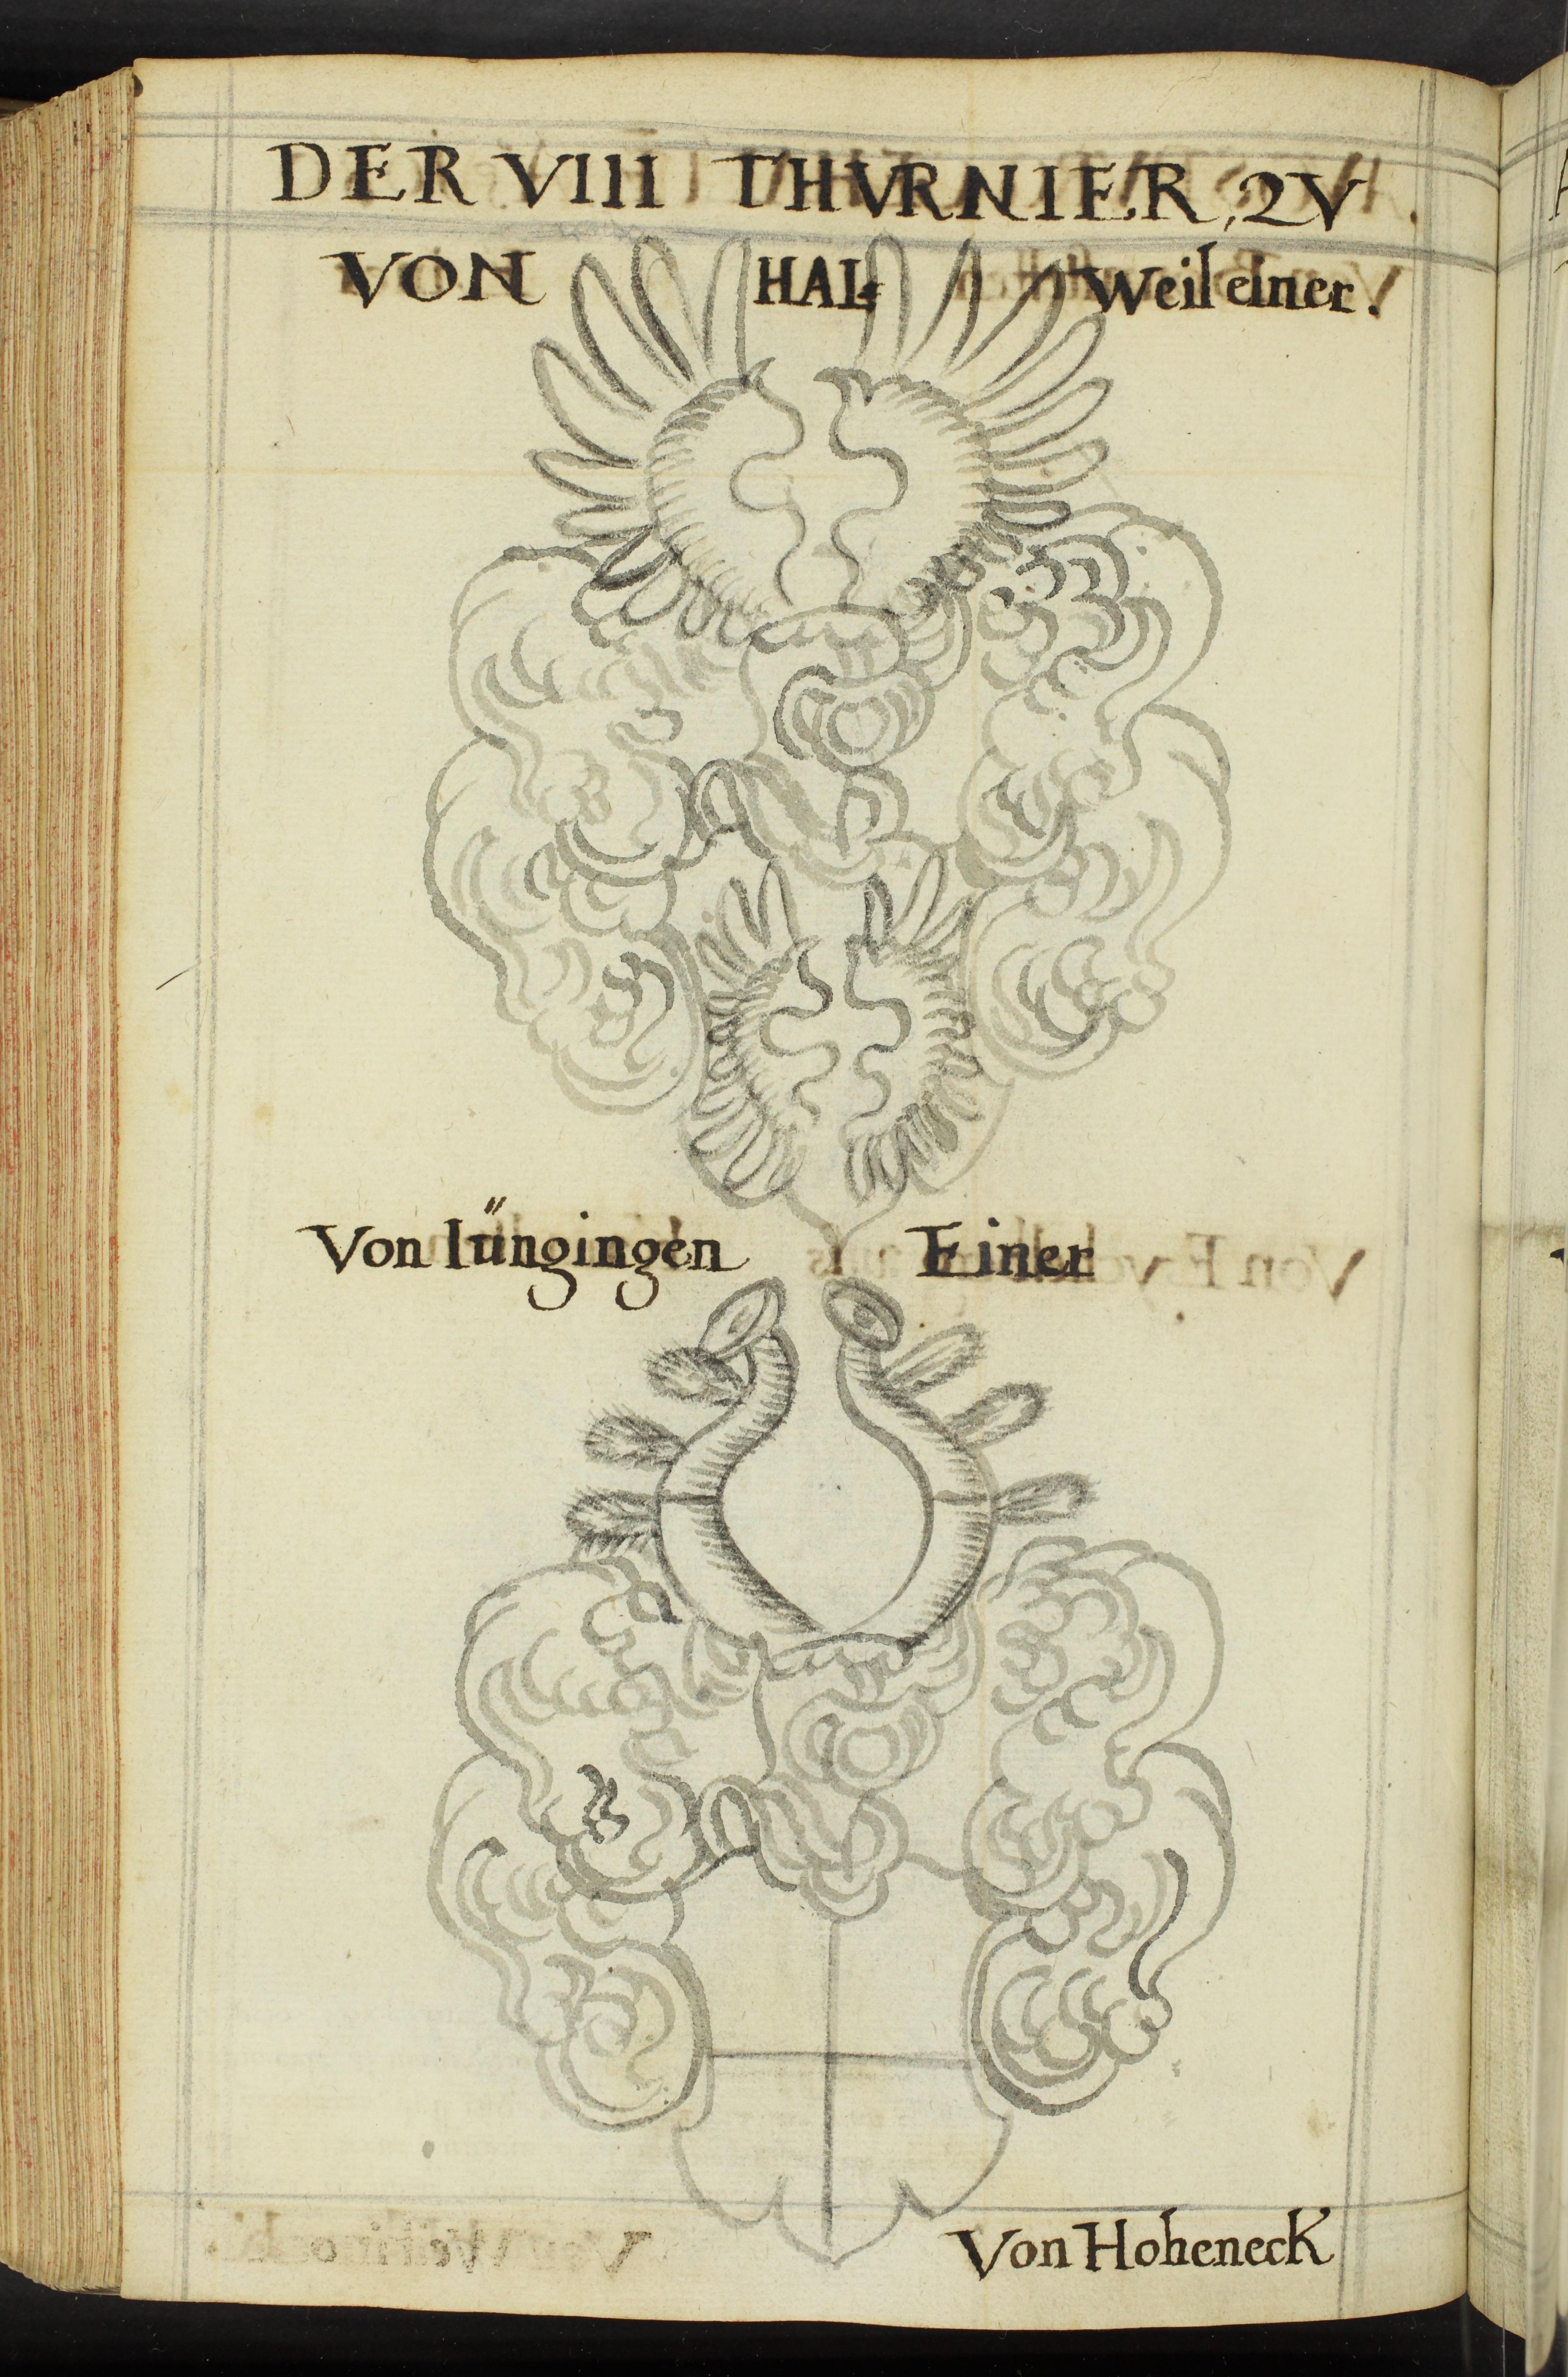 DER VIII THVRNIER, ZV
VON HAL= Weil einer.
Von Iüngingen Einer
Von Hoheneck